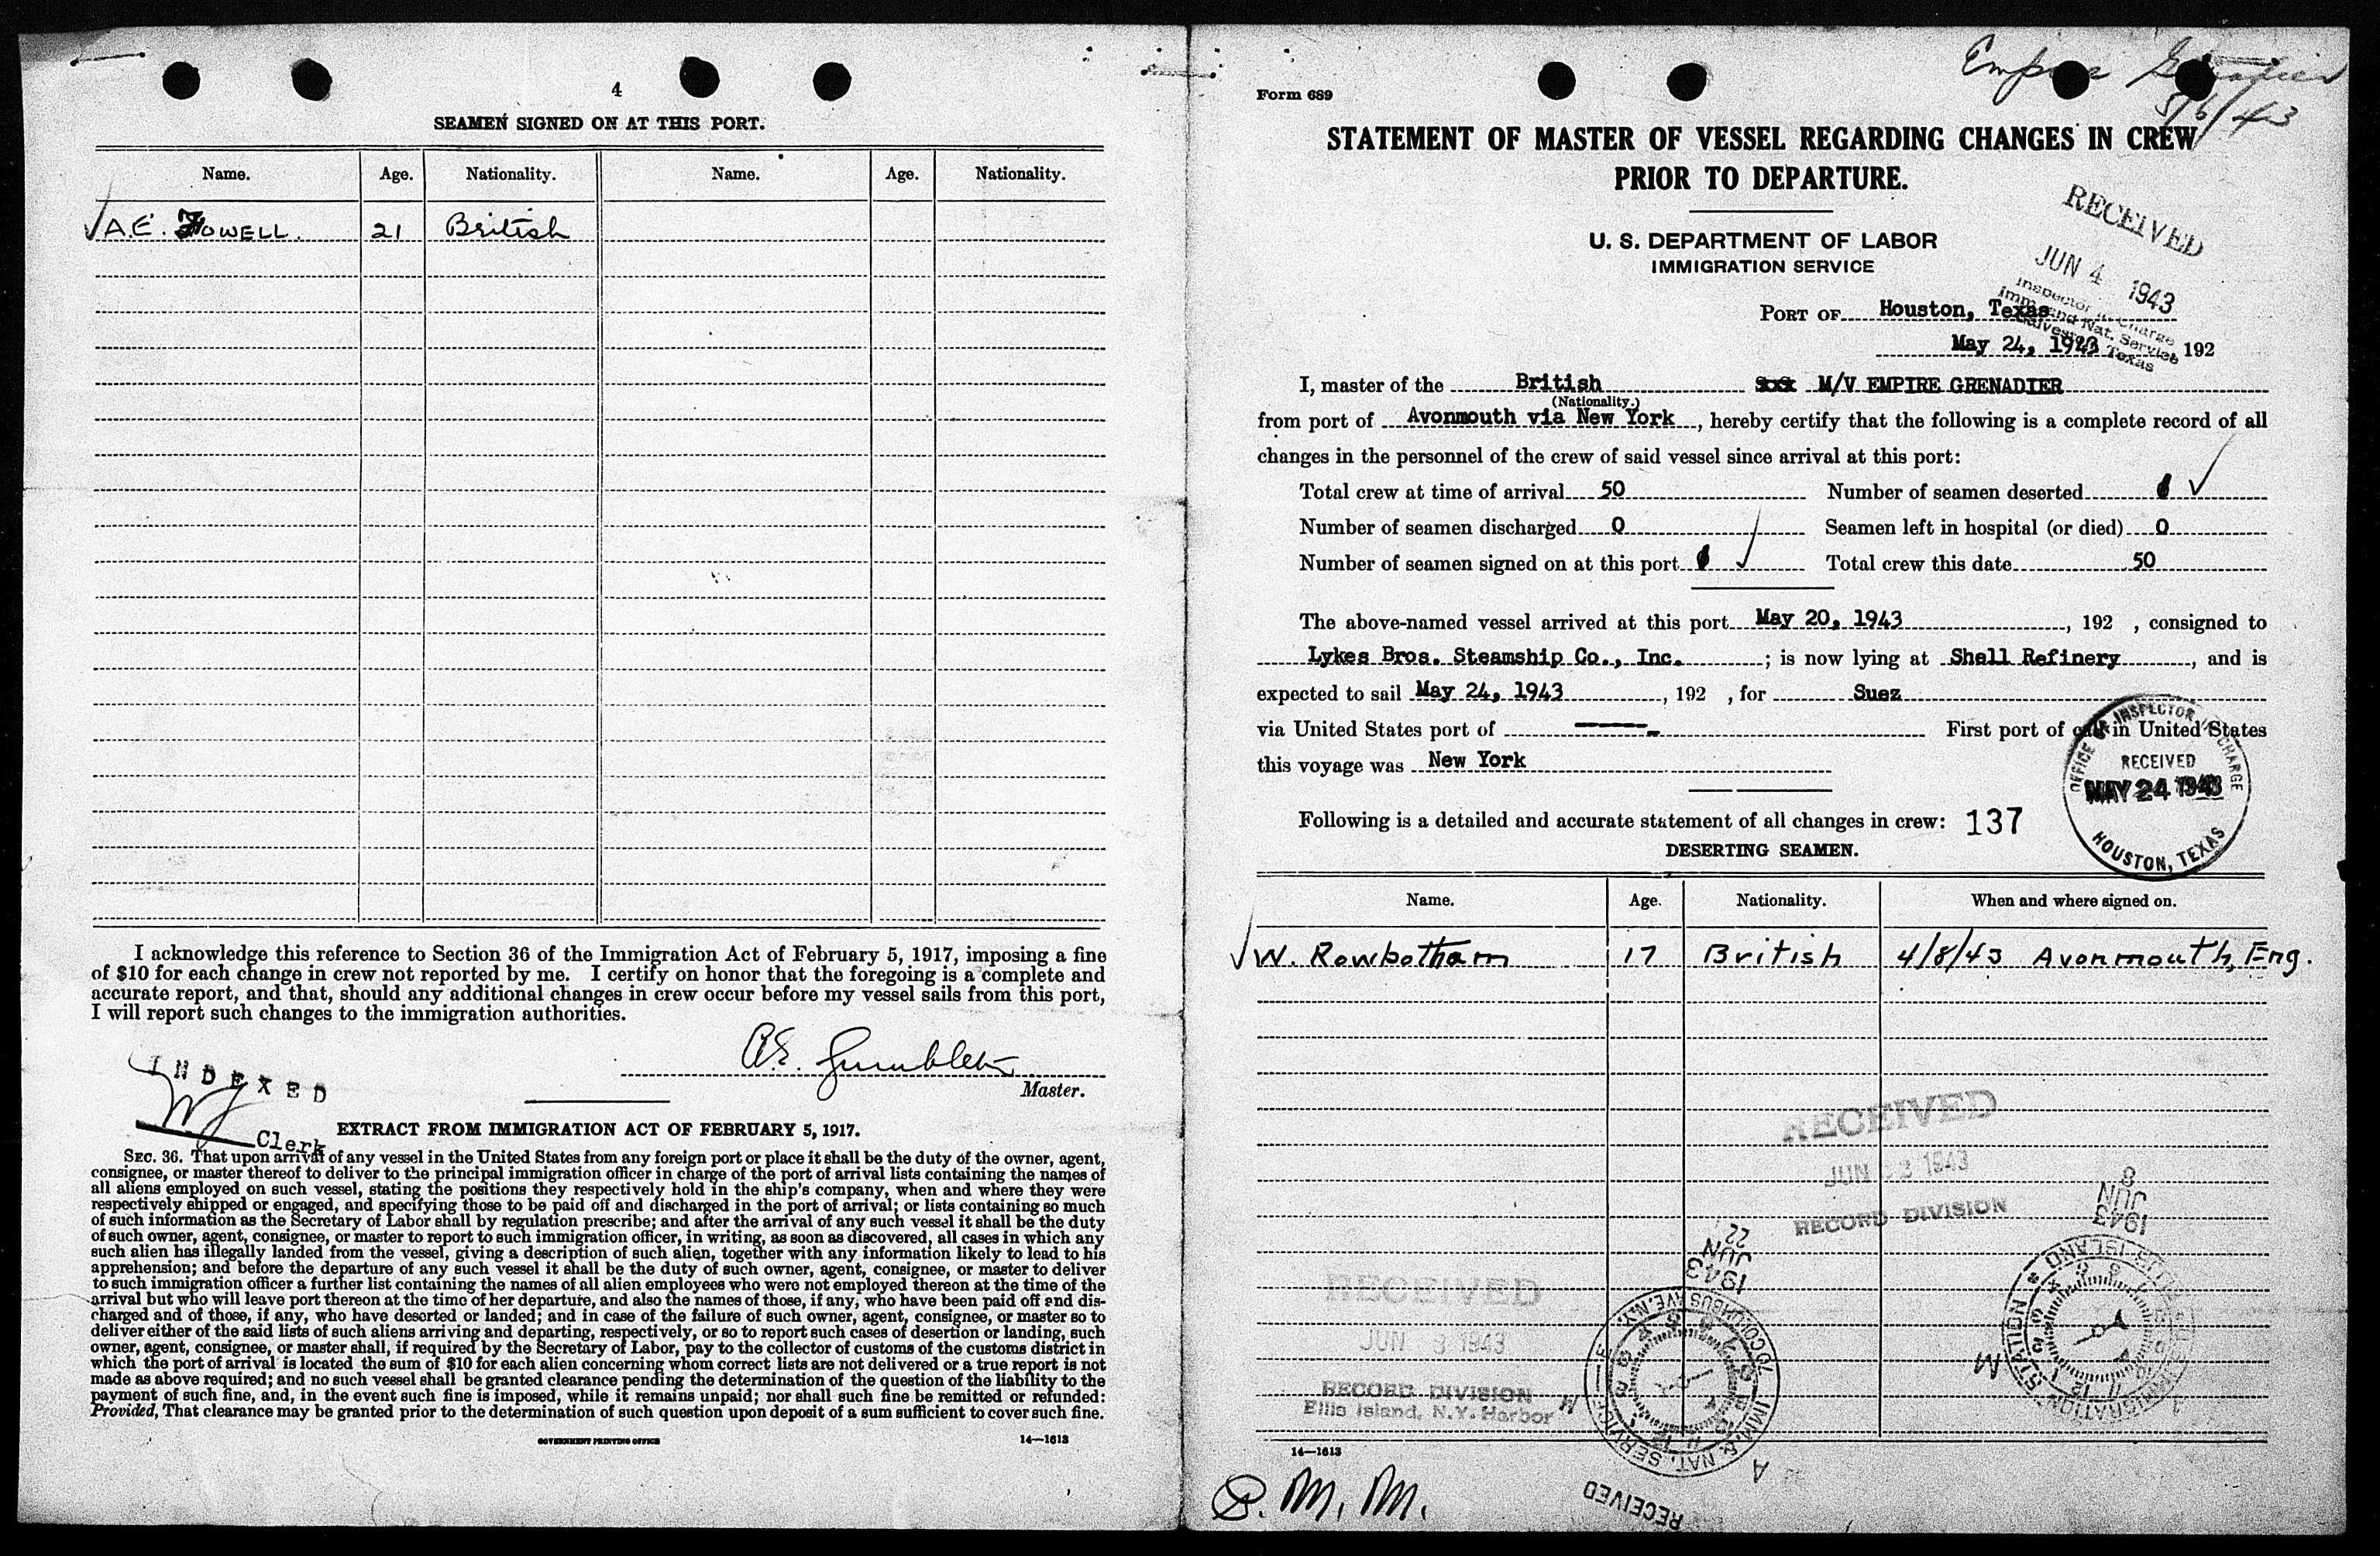 4
SEAMEN SIGNED ON AT THIS PORT.
Name. Age. Nationality. Name. Age. Nationality.
A.E. OWELL. 21 British
I acknowledge this reference to Section 36 of the Immigration Act of February 5, 1917, imposing a fine
of $10 for each change in crew not reported by me. I certify on honor that the foregoing is a complete and
accurate report, and that, should any additional changes in crew occur before my vessel sails from this port,
I will report such changes to the immigration authorities.
Master.
INDEXED
Clerk
EXTRACT FROM IMMIGRATION ACT OF FEBRUARY 5, 1917.
SEC. 36. That upon arrival of any vessel in the United States from any foreign port or place it shall be the duty of the owner, agent,
consignee, or master thereof to deliver to the principal immigration officer in charge of the port of arrival lists containing the names of
all aliens employed on such vessel, stating the positions they respectively hold in the ship's company, when and where they were
respectively shipped or engaged, and specifying those to be paid off and discharged in the port of arrival; or lists containing so much
of such information as the Secretary of Labor shall by regulation prescribe; and after the arrival of any such vessel it shall be the duty
of such owner, agent, consignee, or master to report to such immigration officer, in writing, as soon as discovered, all cases in which any
such alien has illegally landed from the vessel, giving a description of such alien, together with any information likely to lead to his
apprehension; and before the departure of any such vessel it shall be the duty of such owner, agent, consignee, or master to deliver
to such immigration officer a further list containing the names of all alien employees who were not employed thereon at the time of the
arrival but who will leave port thereon at the time of her departure, and also the names of those, if any, who have been paid off and dis-
charged and of those, if any, who have deserted or landed; and in case of the failure of such owner, agent, consignee, or master so to
deliver either of the said lists of such aliens arriving and departing, respectively, or so to report such cases of desertion or landing, such
owner, agent, consignee, or master shall, if required by the Secretary of Labor, pay to the collector of customs of the customs district in
which the port of arrival is located the sum of $10 for each alien concerning whom correct lists are not delivered or a true report is not
made as above required; and no such vessel shall be granted clearance pending the determination of the question of the liability to the
payment of such fine, and, in the event such fine is imposed, while it remains unpaid; nor shall such fine be remitted or refunded:
Provided, That clearance may be granted prior to the determination of such question upon deposit of a sum sufficient to cover such fine.
GOVERNMENT PRINTING OFFICE 14—1613
Form 689
STATEMENT OF MASTER OF VESSEL REGARDING CHANGES IN CREW
PRIOR TO DEPARTURE.
U. S. DEPARTMENT OF LABOR
IMMIGRATION SERVICE
RECEIVED
JUN 4 1943
Inspector in Charge
Imm. and Nat. Service
Galveston, Texas
PORT OF Houston, Texas
May 24, 1943 192
I, master of the British M/V EMPIRE GRENADIER
(Nationality.)
from port of Avonmouth via New York, hereby certify that the following is a complete record of all
changes in the personnel of the crew of said vessel since arrival at this port:
Total crew at time of arrival 50 Number of seamen deserted
Number of seamen discharged 0 Seamen left in hospital (or died) 0
Number of seamen signed on at this port Total crew this date 50
The above-named vessel arrived at this port May 20, 1943, 192 , consigned to
Lykes Bros. Steamship Co., Inc. ; is now lying at Shell Refinery, and is
expected to sail May 24, 1943, 192 , for Suez
via United States port of ---- First port of call in United States
this voyage was New York
OFFICE OF INSPECTOR IN CHARGE
RECEIVED
MAY 24 1943
HOUSTON, TEXAS
Following is a detailed and accurate statement of all changes in crew: 137
DESERTING SEAMEN.
Name. Age. Nationality. When and where signed on.
W. Rowbotham 17 British 4/8/43 Avonmouth, Eng.
RECEIVED
JUN 3 1943
RECORD DIVISION
8
JUN
1943
22
JUN
1943
RECEIVED
JUN 8 1943
RECORD DIVISION
Ellis Island, N.Y. Harbor
14—1613
RECEIVED